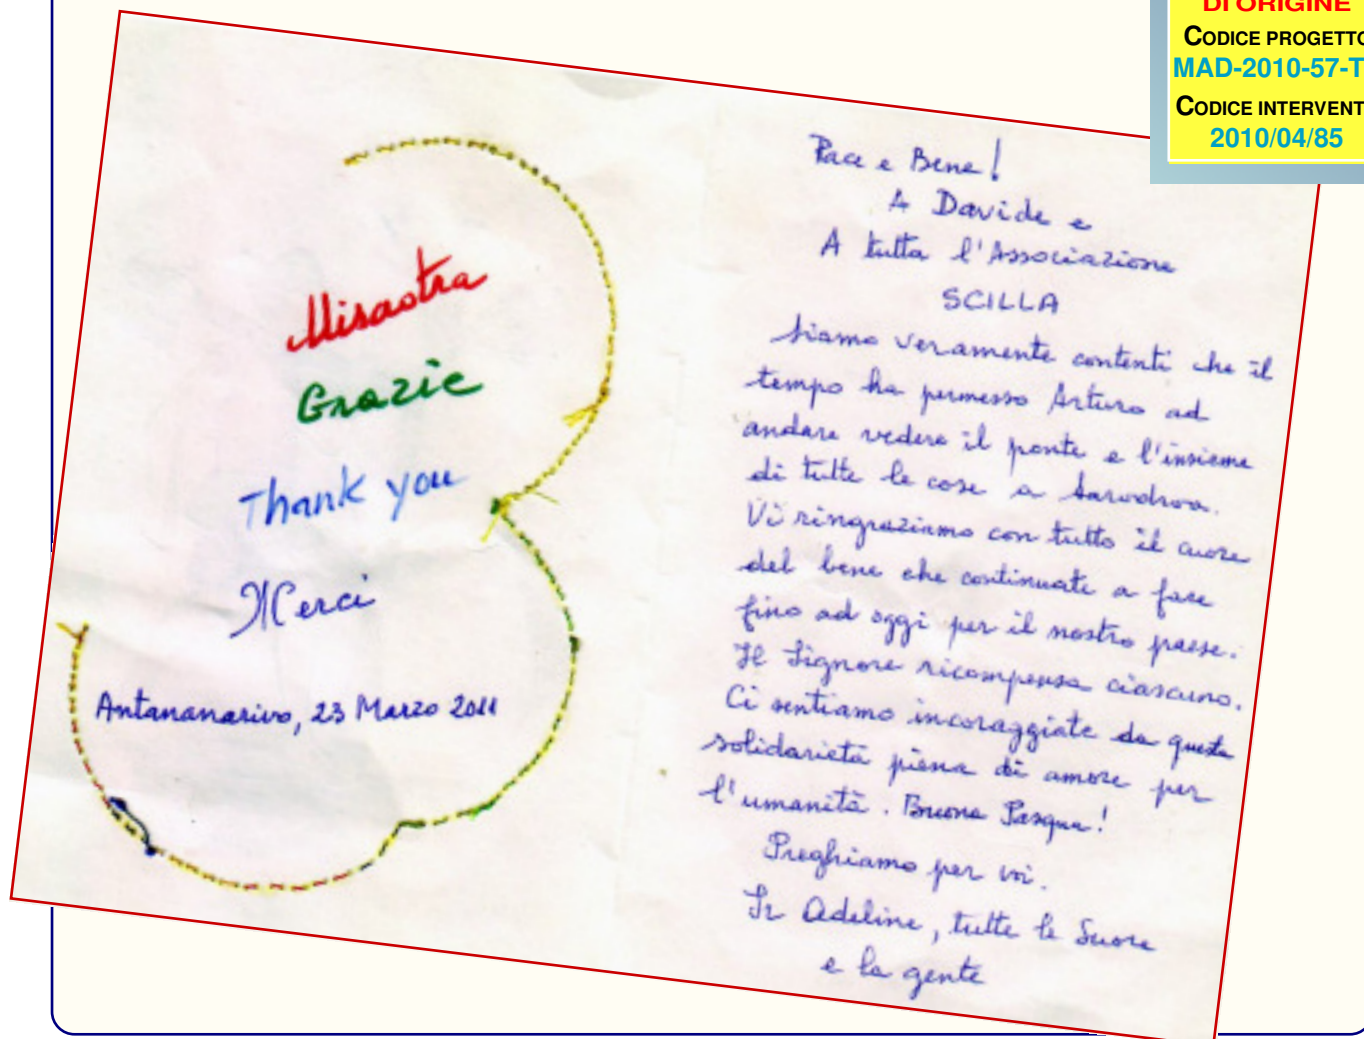 DI ORIGINE
CODICE PROGETTO
MAD-2010-57-T
CODICE INTERVENT
2010/04/85
Misaotra
Grazie
Thank you
Merci
Antananarivo, 23 Marzo 2011
Pace e Bene!
A Davide e
A tutta l'Associazione
SCILLA
Siamo veramente contenti che il
tempo ha permesso Arturo ad
andare vedere il ponte e l'insieme
di tutte le cose a
Vi ringraziamo con tutto il cuore
del bene che continuate a fare
fino ad oggi per il nostro paese.
Il Signore ricompensa ciascuno.
Ci sentiamo incoraggiate da questa
solidarietà piena di amore per
l'umanità. Buona Pasqua!
Preghiamo per voi.
Sr Adeline, tutte le Suore
e la gente